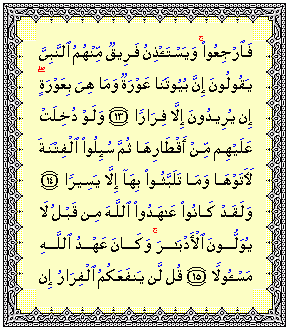 فَٱرْجِعُوا۟ ۚ وَيَسْتَـْٔذِنُ فَرِيقٌ مِّنْهُمُ ٱلنَّبِىَّ
يَقُولُونَ إِنَّ بُيُوتَنَا عَوْرَةٌ وَمَا هِىَ بِعَوْرَةٍ ۖ
إِن يُرِيدُونَ إِلَّا فِرَارًا ١٣ وَلَوْ دُخِلَتْ
عَلَيْهِم مِّنْ أَقْطَارِهَا ثُمَّ سُئِلُوا۟ ٱلْفِتْنَةَ
لَـَٔاتَوْهَا وَمَا تَلَبَّثُوا۟ بِهَآ إِلَّا يَسِيرًا ١٤
وَلَقَدْ كَانُوا۟ عَـٰهَدُوا۟ ٱللَّهَ مِن قَبْلُ لَا
يُوَلُّونَ ٱلْأَدْبَـٰرَ ۚ وَكَانَ عَهْدُ ٱللَّهِ
مَسْـُٔولًا ١٥ قُل لَّن يَنفَعَكُمُ ٱلْفِرَارُ إِن